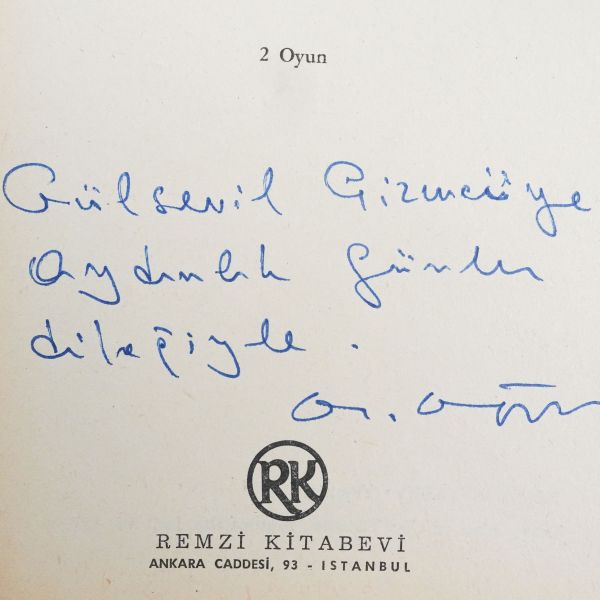 2 Oyun
Gülsevil Gizmeciö'ye
aydınlık günler
dileğiyle.
RK
REMZİ KİTABEVİ
ANKARA CADDESİ, 93 - ISTANBUL